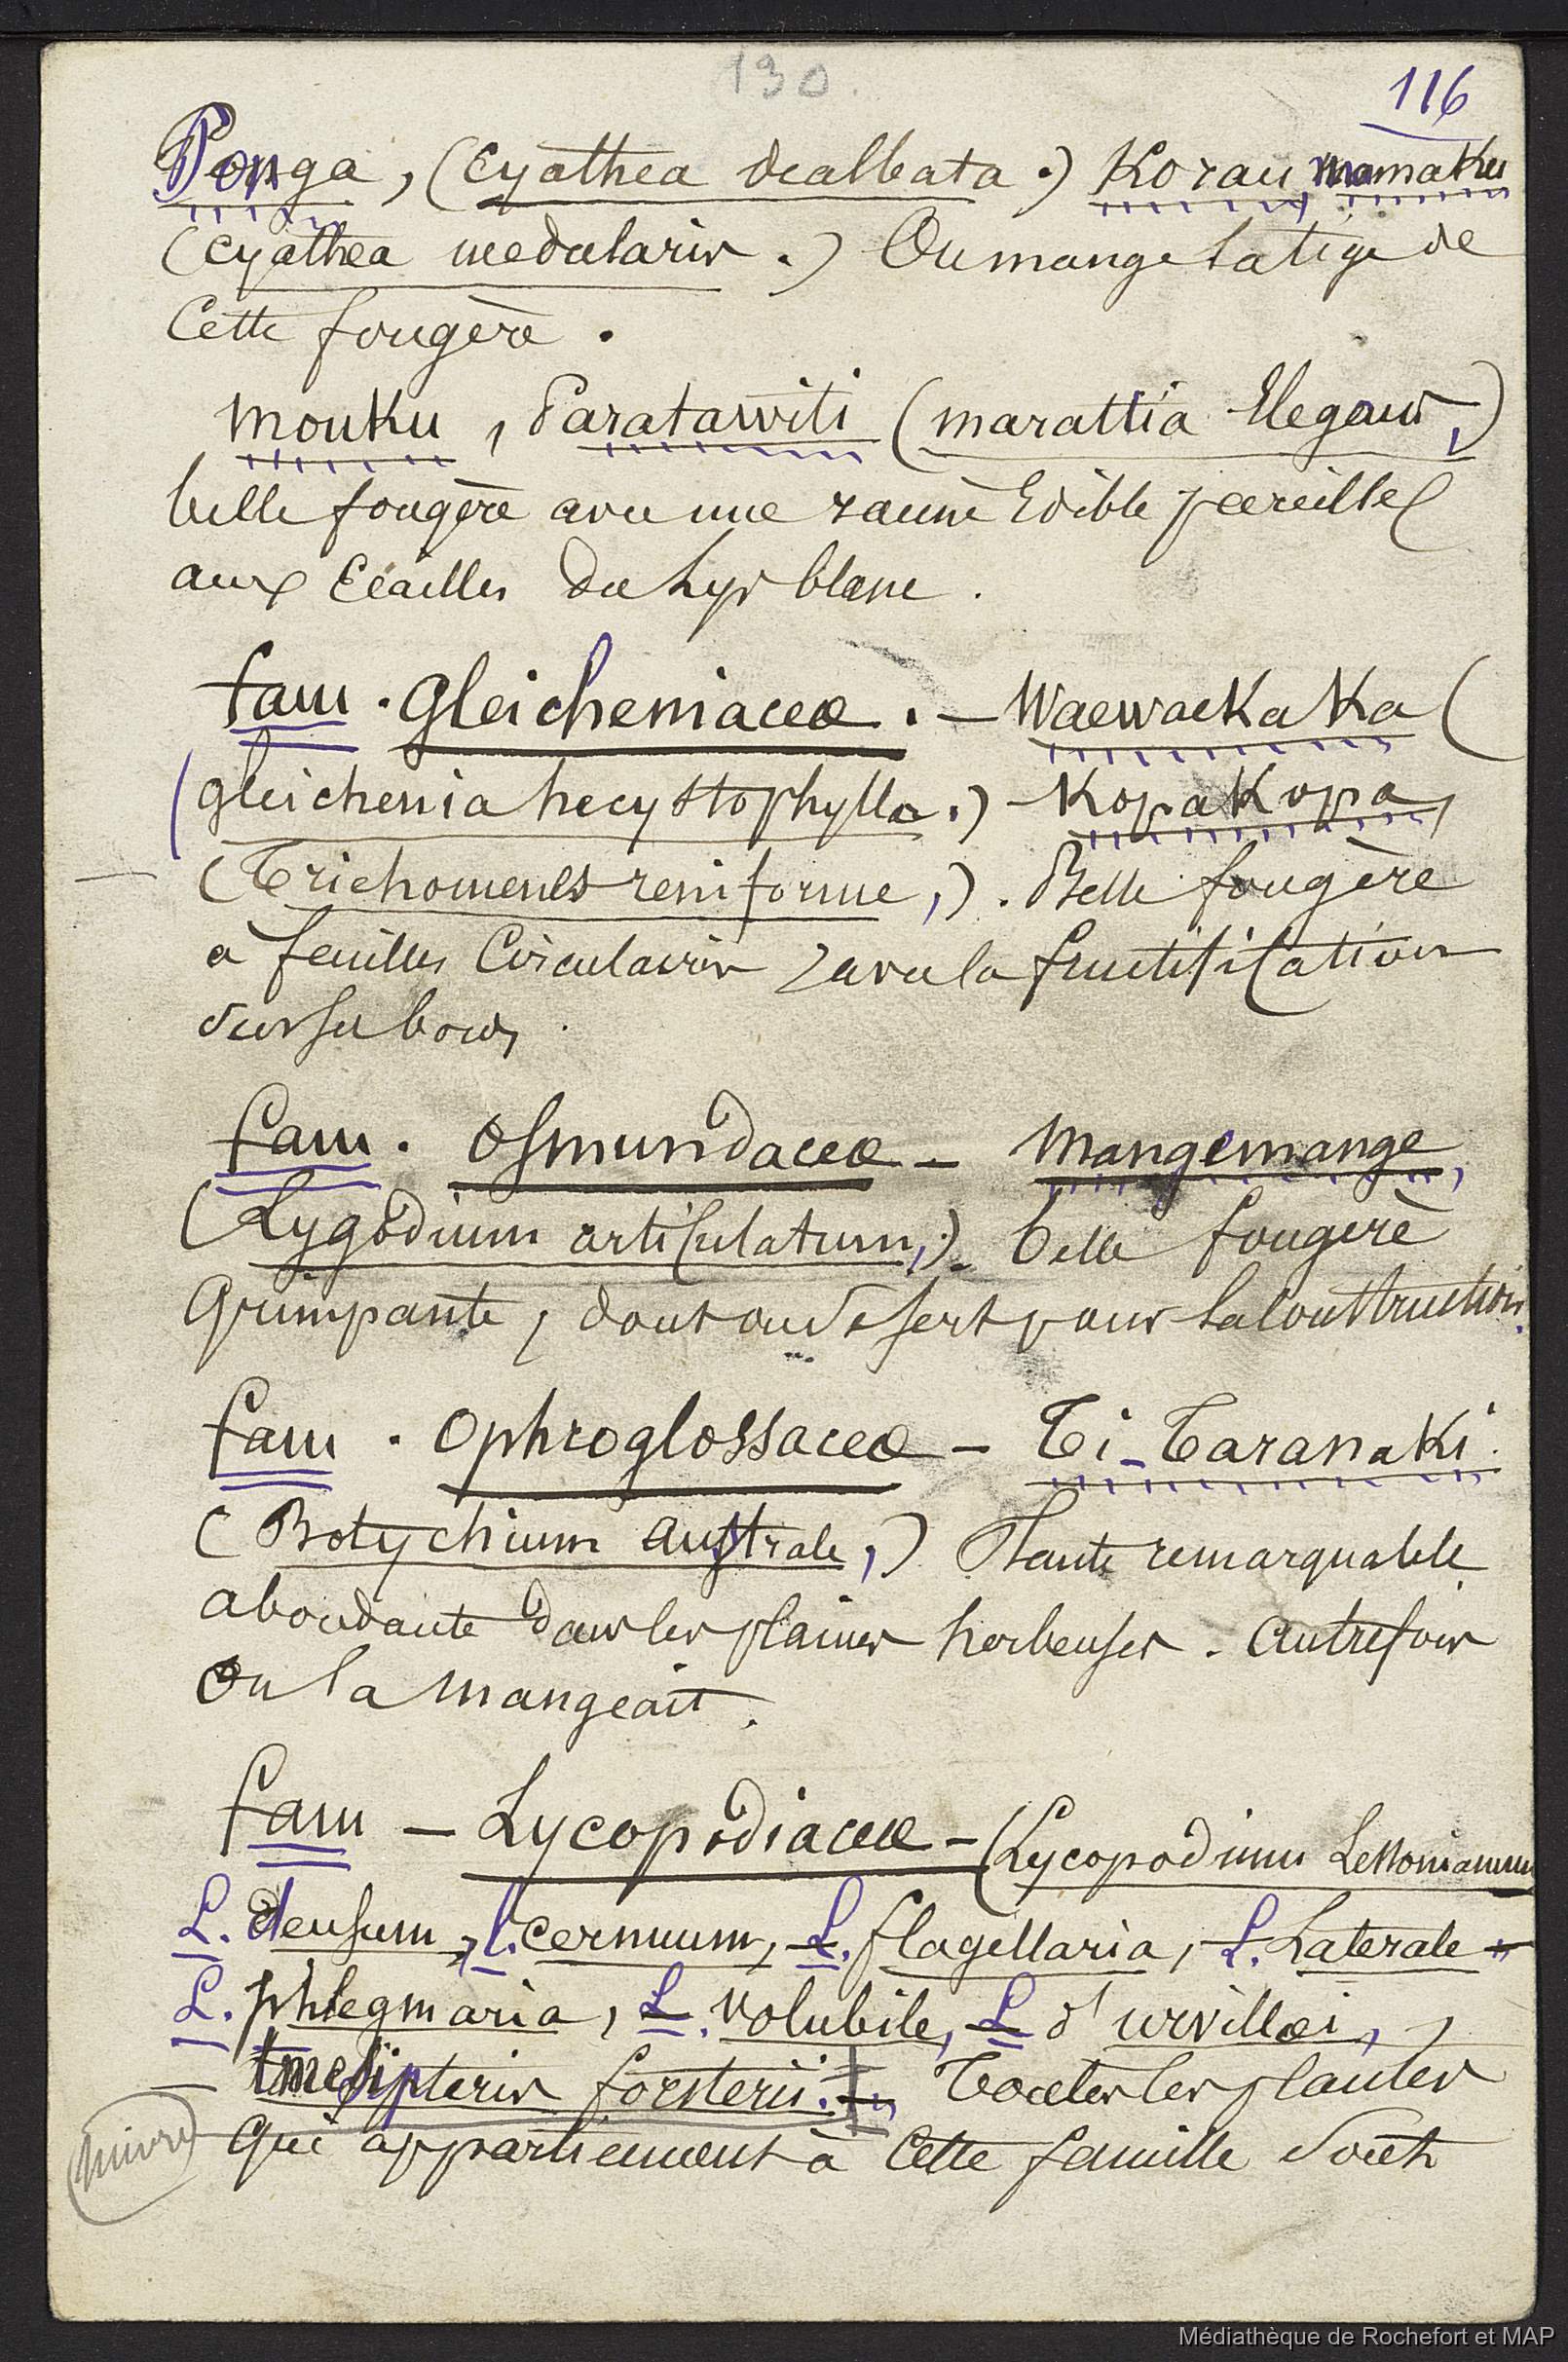 130.
116
Ponga, (Cyathea dealbata.) Korau, mamaku
(Cyathea medularis.) On mange la tige de
Cette fougère.
Mouku, Paratawiti (marattia Elegans,)
belle fougère avec une racine Edible pareille
aux Ecailles du Lys blanc.
fam. Gleicheniaceæ. — Waewaekaka (
(gleichenia hecystophylla.) — Kopakopa,
(Trichomenes reniforme,). Belle fougère
à feuilles Circulaires, avec la fructification
sur ses bords.
fam. Osmundaceæ — Mangemange,
(Lygodium articulatum,). belle fougère
Grimpante, dont on se sert pour la construction.
fam. Ophroglossaceæ — Ti-Taranaki.
(Botychium australe,) Plante remarquable
abondante dans les plaines herbeuses. autrefois
on la mangeait.
fam — Lycopodiaceæ — (Lycopodium Lessonianum
L. densum, L. cernuum, L. flagellaria, L. Laterale —
L. phlegmaria, L. volubile, L d'urvillæi,
tmesipteris forsterii. Toutes les plantes
qui appartiennent à Cette famille sont
Médiathèque de Rochefort et MAP